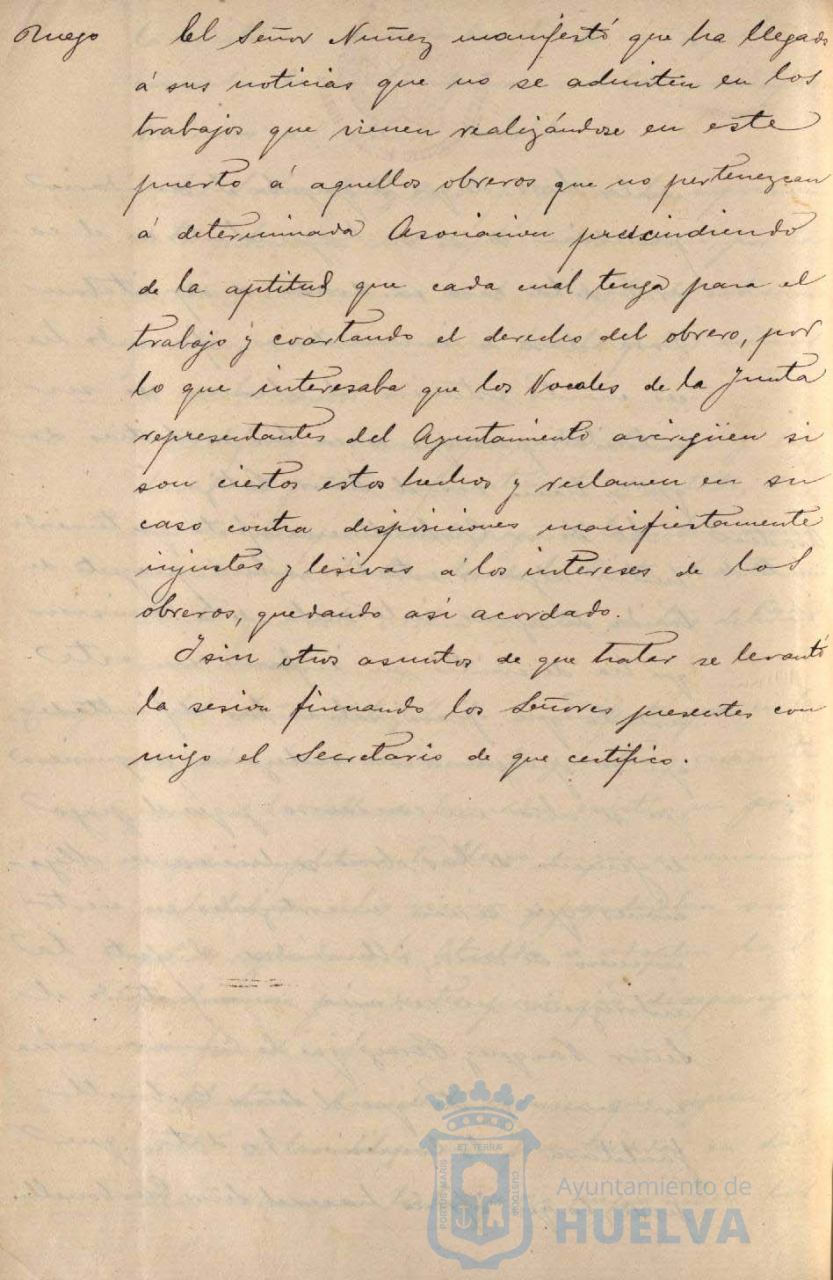 Ruego
El Señor Nuñez manifestó que ha llegado
á sus noticias que no se admiten en los
trabajos que vienen realizándose en este
puerto á aquellos obreros que no pertenezcan
á determinada Asociacion prescindiendo
de la aptitud que cada cual tenga para el
trabajo y coartando el derecho del obrero, por
lo que interesaba que los Vocales de la Junta
representantes del Ayuntamiento averigüen si
son ciertos estos hechos y reclamen en su
caso contra disposiciones manifiestamente
injustas y lesivas á los intereses de los
obreros, quedando asi acordado.
Y sin otros asuntos de que tratar se levantó
la sesion firmando los Señores presentes con
migo el Secretario de que certifico.
ET TERRAE
PORTUS MARIS
CUSTODIA
Ayuntamiento de
HUELVA